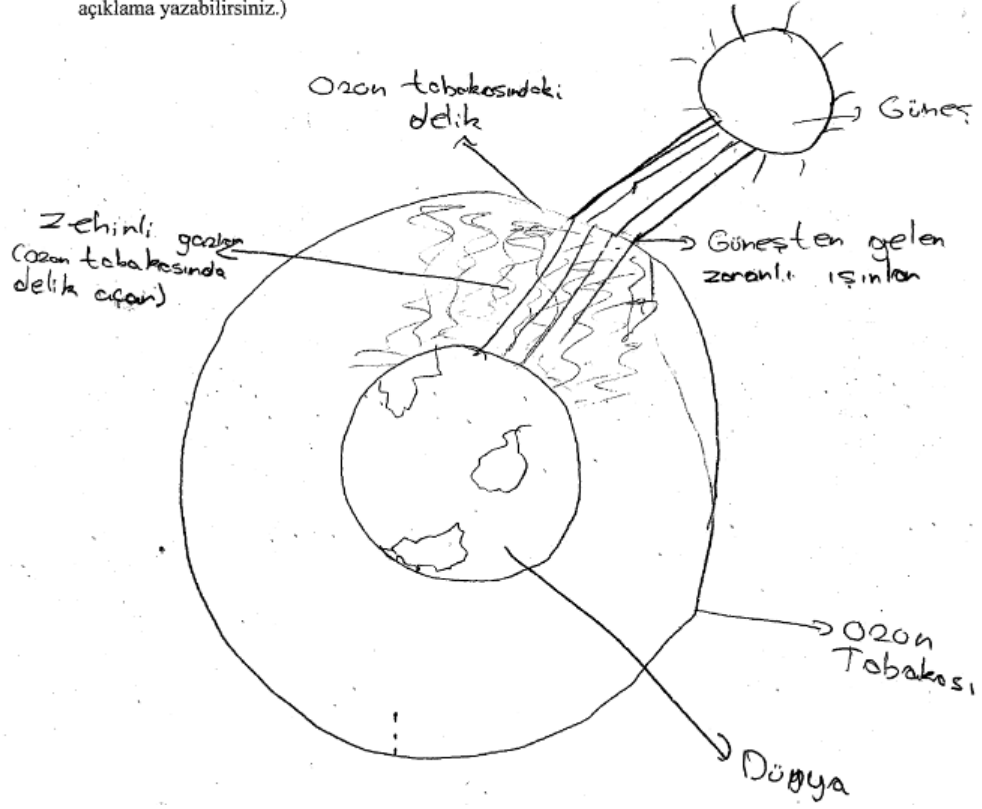 açıklama yazabilirsiniz.)
Ozon tabakasındaki
delik
Güneş
Zehirli gazlar
(ozon tabakasında
delik açan)
Güneşten gelen
zararlı ışınlar
Ozon
Tabakası
Dünya